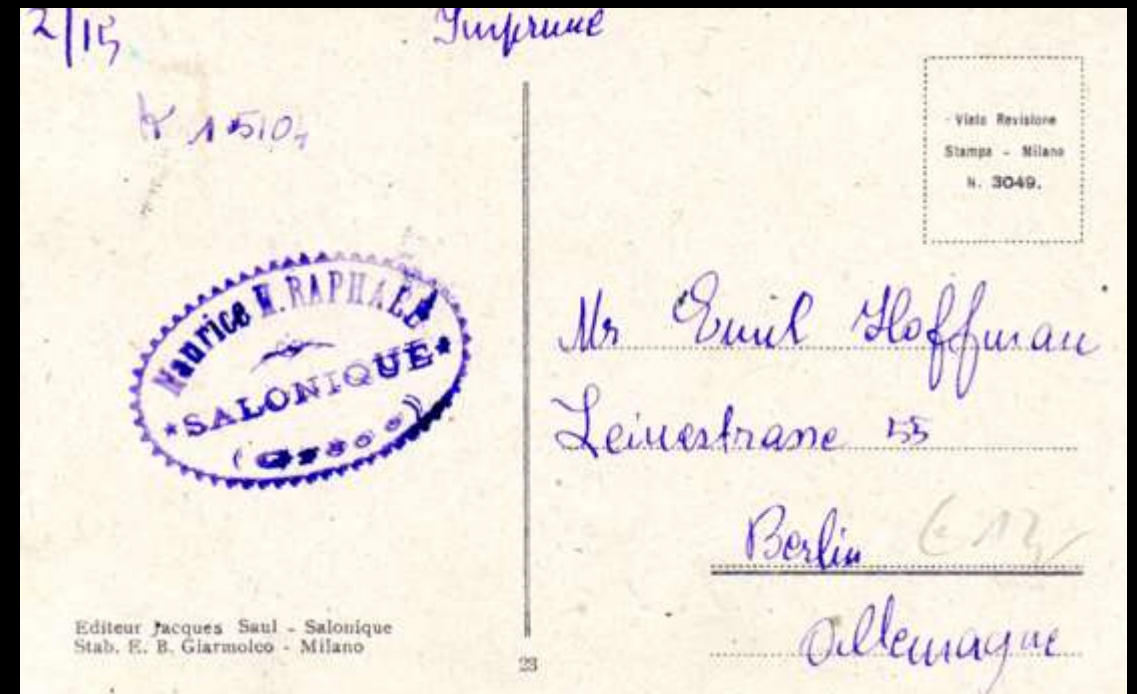 2/15
Imprimé
K 1510,
Visto Revisione
Stampa - Milano
N. 3049.
Maurice N. RAPHAEL
*SALONIQUE*
(Grèce)
Mr Emil Hoffman
Leinestrasse 55
Berlin
Allemagne
Editeur Jacques Saul - Salonique
Stab. E. B. Giarmoleo - Milano
23